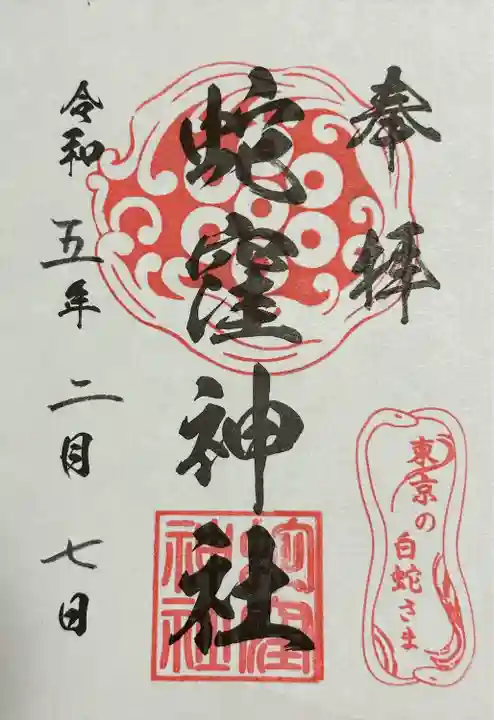 奉拝
蛇窪神社
令和五年二月七日
東京の
白蛇さま
蛇窪
神社